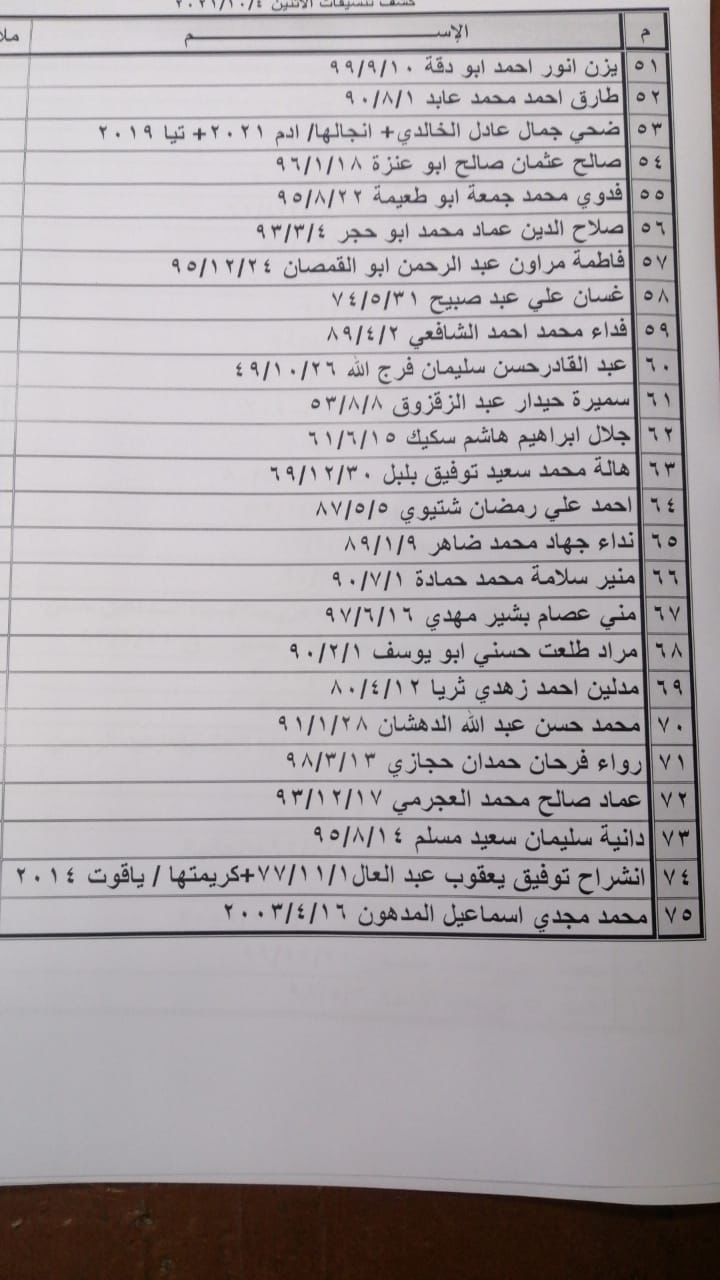 كشف تنسيقات الاثنين ٢٠٢١/١٠/٤
م الإســـــم ملا
٥١ يزن انور احمد ابو دقة ٩٩/٩/١٠
٥٢ طارق احمد محمد عابد ٩٠/٨/١
٥٣ ضحي جمال عادل الخالدي+ انجالها/ ادم ٢٠٢١+ تيا ٢٠١٩
٥٤ صالح عثمان صالح ابو عنزة ٩٦/١/١٨
٥٥ فدوي محمد جمعة ابو طعيمة ٩٥/٨/٢٢
٥٦ صلاح الدين عماد محمد ابو حجر ٩٣/٣/٤
٥٧ فاطمة مراون عبد الرحمن ابو القمصان ٩٥/١٢/٢٤
٥٨ غسان علي عبد صبيح ٧٤/٥/٣١
٥٩ فداء محمد احمد الشافعي ٨٩/٤/٢
٦٠ عبد القادرحسن سليمان فرج الله ٤٩/١٠/٢٦
٦١ سميرة حيدار عبد الزقزوق ٥٣/٨/٨
٦٢ جلال ابراهيم هاشم سكيك ٦١/٦/١٥
٦٣ هالة محمد سعيد توفيق بلبل ٦٩/١٢/٣٠
٦٤ احمد علي رمضان شتيوي ٨٧/٥/٥
٦٥ نداء جهاد محمد ضاهر ٨٩/١/٩
٦٦ منير سلامة محمد حمادة ٩٠/٧/١
٦٧ مني عصام بشير مهدي ٩٧/٦/١٦
٦٨ مراد طلعت حسني ابو يوسف ٩٠/٢/١
٦٩ مدلين احمد زهدي ثريا ٨٠/٤/١٢
٧٠ محمد حسن عبد الله الدهشان ٩١/١/٢٨
٧١ رواء فرحان حمدان حجازي ٩٨/٣/١٣
٧٢ عماد صالح محمد العجرمي ٩٣/١٢/١٧
٧٣ دانية سليمان سعيد مسلم ٩٥/٨/١٤
٧٤ انشراح توفيق يعقوب عبد العال٧٧/١١/١+كريمتها / ياقوت ٢٠١٤
٧٥ محمد مجدي اسماعيل المدهون ٢٠٠٣/٤/١٦